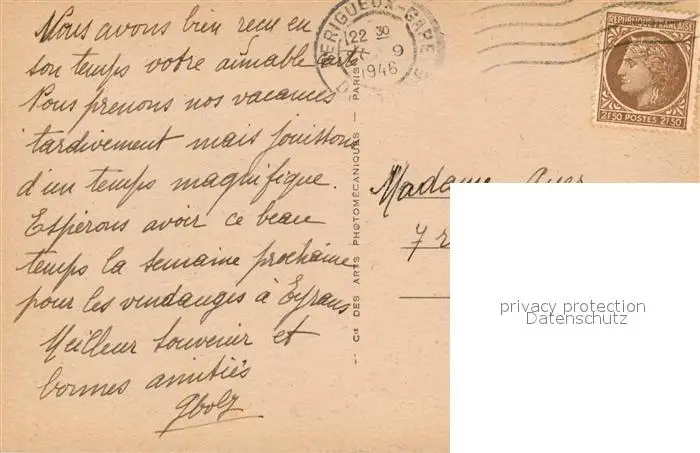 Nous avons bien reçu en
son temps votre aimable carte
Nous prenons nos vacances
tardivement mais jouissons
d'un temps magnifique.
Espérons avoir ce beau
temps la semaine prochaine
pour les vendanges à Eyrans
Meilleur souvenir et
bonnes amitiés
PERIGUEUX-GARE
22 30
9
1946
REPUBLIQUE FRANÇAISE
2F50 POSTES 2F50
Cie DES ARTS PHOTOMÉCANIQUES - PARIS
Madame
7 r
privacy protection
Datenschutz